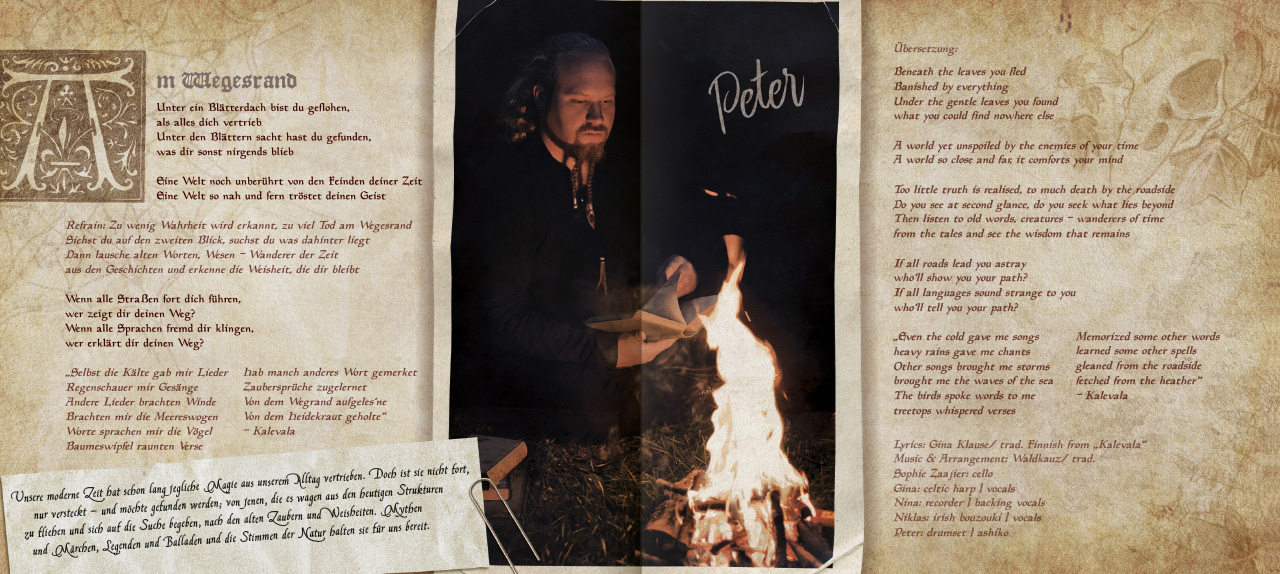 Am Wegesrand
Unter ein Blätterdach bist du geflohen,
als alles dich vertrieb
Unter den Blättern sacht hast du gefunden,
was dir sonst nirgends blieb
Eine Welt noch unberührt von den Feinden deiner Zeit
Eine Welt so nah und fern tröstet deinen Geist
Refrain: Zu wenig Wahrheit wird erkannt, zu viel Tod am Wegesrand
Siehst du auf den zweiten Blick, suchst du was dahinter liegt
Dann lausche alten Worten, Wesen – Wanderer der Zeit
aus den Geschichten und erkenne die Weisheit, die dir bleibt
Wenn alle Straßen fort dich führen,
wer zeigt dir deinen Weg?
Wenn alle Sprachen fremd dir klingen,
wer erklärt dir deinen Weg?
„Selbst die Kälte gab mir Lieder
Regenschauer mir Gesänge
Andere Lieder brachten Winde
Brachten mir die Meereswogen
Worte sprachen mir die Vögel
Baumeswipfel raunten Verse
hab manch anderes Wort gemerket
Zaubersprüche zugelernet
Von dem Wegrand aufgeles'ne
Von dem Heidekraut geholte“
– Kalevala
Unsere moderne Zeit hat schon lang jegliche Magie aus unserem Alltag vertrieben. Doch ist sie nicht fort,
nur versteckt – und möchte gefunden werden; von jenen, die es wagen aus den heutigen Strukturen
zu fliehen und sich auf die Suche begeben, nach den alten Zaubern und Weisheiten. Mythen
und Märchen, Legenden und Balladen und die Stimmen der Natur halten sie für uns bereit.
Peter
Übersetzung:
Beneath the leaves you fled
Banished by everything
Under the gentle leaves you found
what you could find nowhere else
A world yet unspoiled by the enemies of your time
A world so close and far, it comforts your mind
Too little truth is realised, to much death by the roadside
Do you see at second glance, do you seek what lies beyond
Then listen to old words, creatures – wanderers of time
from the tales and see the wisdom that remains
If all roads lead you astray
who'll show you your path?
If all languages sound strange to you
who'll tell you your path?
„Even the cold gave me songs
heavy rains gave me chants
Other songs brought me storms
brought me the waves of the sea
The birds spoke words to me
treetops whispered verses
Memorized some other words
learned some other spells
gleaned from the roadside
fetched from the heather“
– Kalevala
Lyrics: Gina Klause/ trad. Finnish from „Kalevala“
Music & Arrangement: Waldkauz/ trad.
Sophie Zaajier: cello
Gina: celtic harp | vocals
Nina: recorder | backing vocals
Niklas: irish bouzouki | vocals
Peter: drumset | ashiko